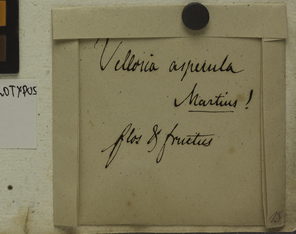 Vellosia asperula
Martius!
flos & fructus
LOTYPUS